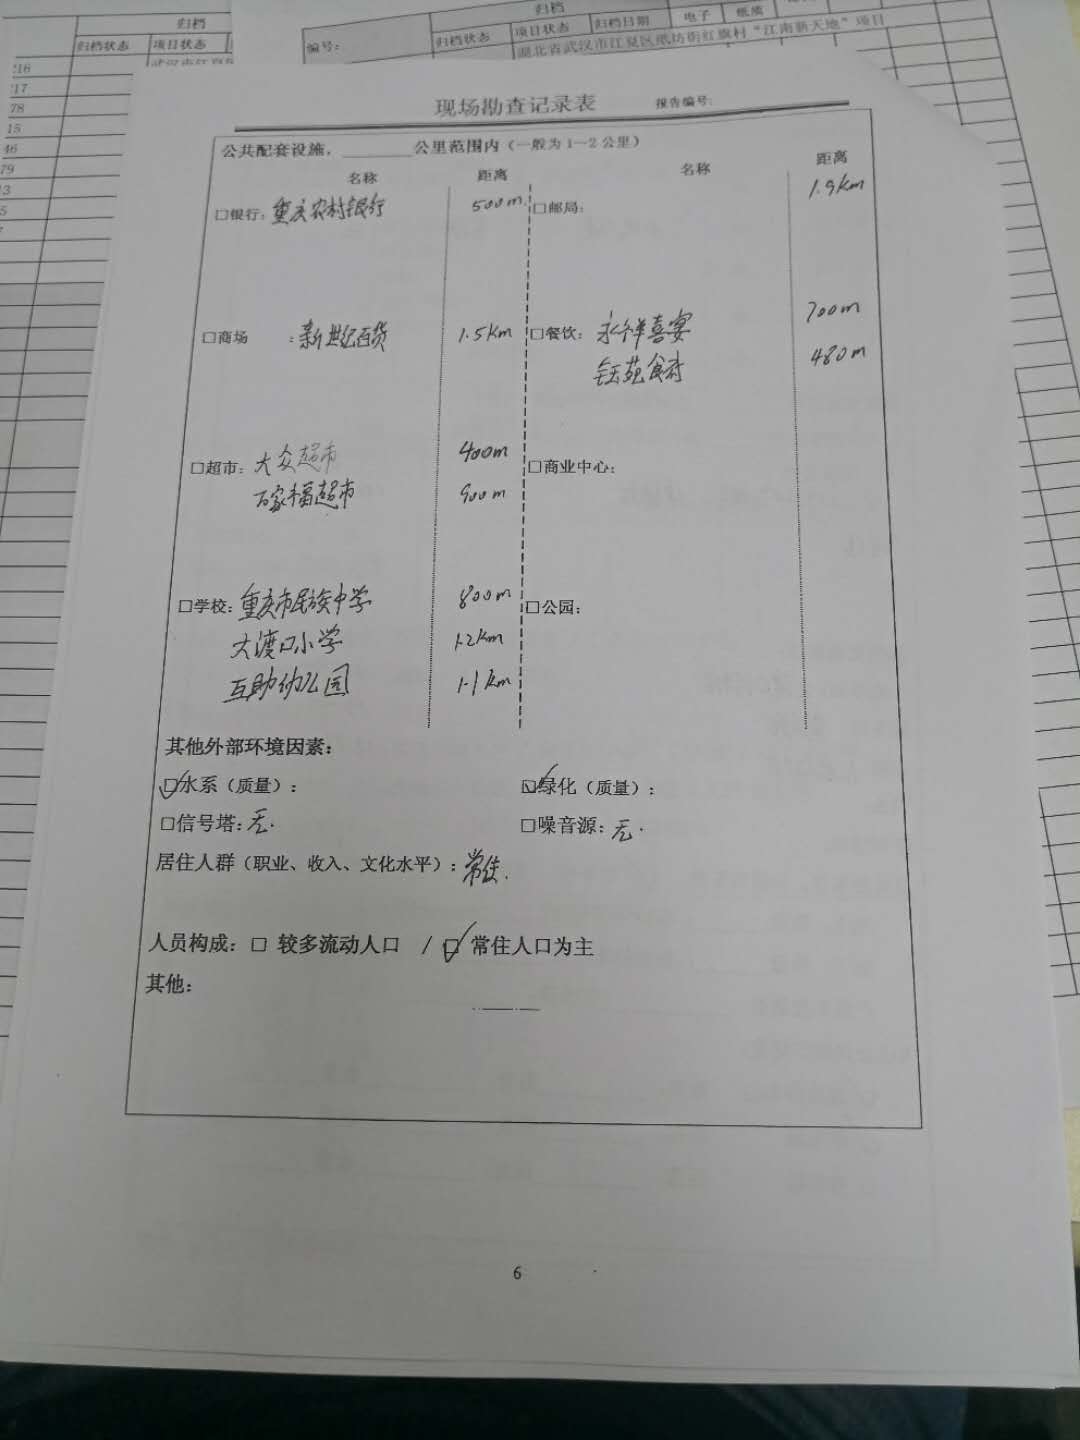 归档
归档状态 项目状态
:16
:17
78
15
46
79
归档
编号: 归档状态 项目状态 归档日期 电子 纸质
湖北省武汉市江夏区纸坊街红旗村“江南新天地”项目
现场勘查记录表 报告编号:
公共配套设施，________公里范围内（一般为1—2公里）
名称 距离 名称 距离
□银行: 重庆农村银行 500m □邮局: 1.9km
□商场 : 新世纪百货 1.5km □餐饮: 永祥喜宴 700m
钰苑食府 480m
□超市: 大众超市 400m □商业中心:
万家福超市 900m
□学校: 重庆市民族中学 800m □公园:
大渡口小学 1.2km
互助幼儿园 1.1km
其他外部环境因素:
☑水系（质量）: ☑绿化（质量）:
□信号塔: 无. □噪音源: 无.
居住人群（职业、收入、文化水平）: 常住.
人员构成: □ 较多流动人口 / ☑ 常住人口为主
其他:
6